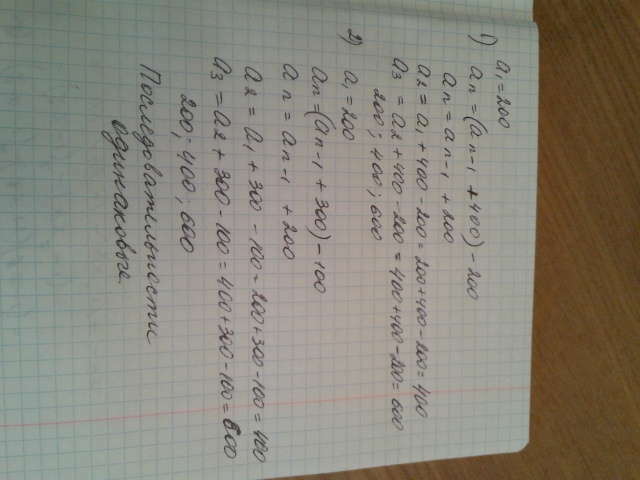 a₁=200
1) an=(an-1+400)-200
an=an-1+200
a2=a₁+400-200=200+400-200=400
a3=a2+400-200=400+400-200=600
200; 400; 600
2) a₁=200
an=(an-1+300)-100
an=an-1+200
a2=a₁+300-100=200+300-100=400
a3=a2+300-100=400+300-100=600
200; 400; 600
Последовательности
одинаковые.